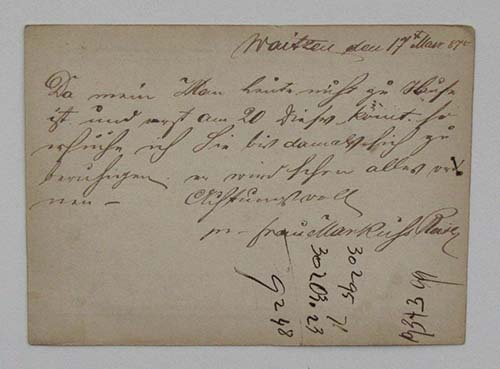 Waitzen den 17t Mar 87
Da mein Man heute nicht zu Hause
ist und erst am 20 dieses kömt so
ersuche ich Sie bis damals sich zu
beruhigen. er wird schon alles ord
nen – Achtungsvoll
Frau Markus
30 295
302 03.23
92 48